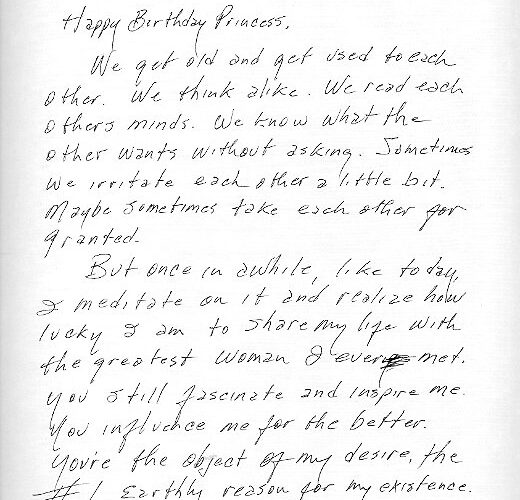 Happy Birthday Princess,
We get old and get used to each
other. We think alike. We read each
others minds. We know what the
other wants without asking. Sometimes
we irritate each other a little bit.
Maybe sometimes take each other for
granted.
But once in awhile, like today,
I meditate on it and realize how
lucky I am to share my life with
the greatest woman I ever met.
You still fascinate and inspire me.
You influence me for the better.
You're the object of my desire, the
#1 Earthly reason for my existence.